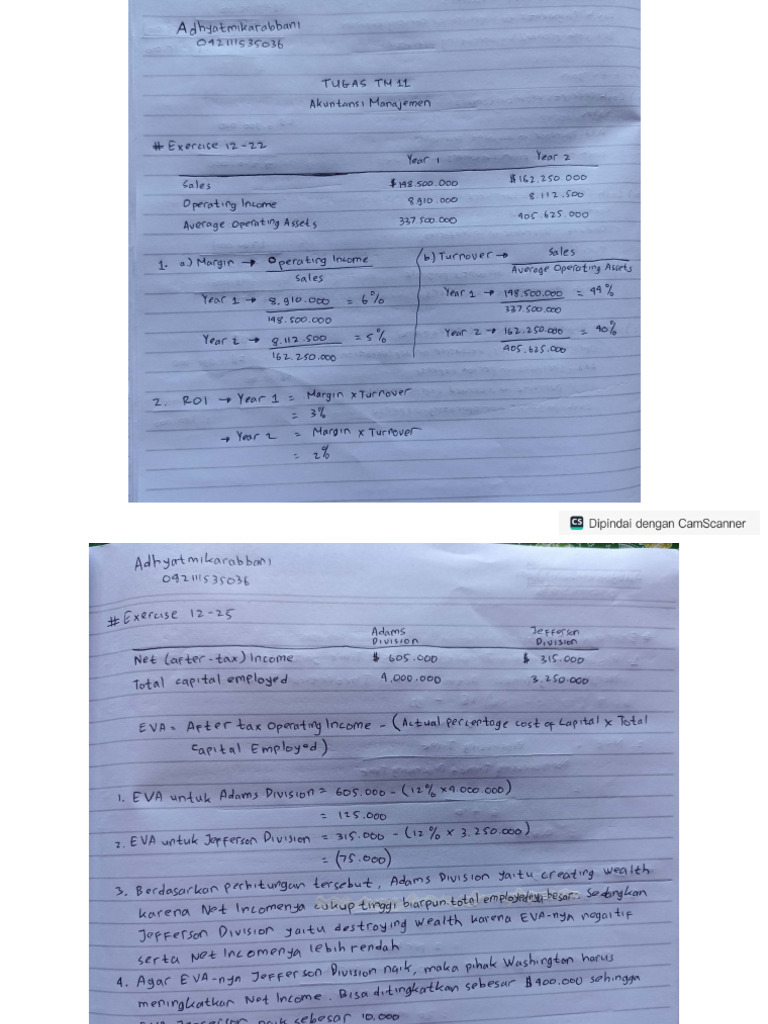 Adhyatmikarabbani
042111535036
TUGAS TM 11
Akuntansi Manajemen
# Exercise 12-22
Year 1 Year 2
Sales $ 148.500.000 $ 162.250.000
Operating Income 8.910.000 8.112.500
Average Operating Assets 337.500.000 405.625.000
1. a) Margin → Operating Income / Sales
Year 1 → 8.910.000 / 148.500.000 = 6%
Year 2 → 8.112.500 / 162.250.000 = 5%
b) Turnover → Sales / Average Operating Assets
Year 1 → 148.500.000 / 337.500.000 = 44%
Year 2 → 162.250.000 / 405.625.000 = 40%
2. ROI → Year 1 = Margin x Turnover
= 3%
→ Year 2 = Margin x Turnover
= 2%
CS Dipindai dengan CamScanner
Adhyatmikarabbani
042111535036
# Exercise 12-25
Adams Division Jefferson Division
Net (after-tax) Income $ 605.000 $ 315.000
Total capital employed 4.000.000 3.250.000
EVA = After tax Operating Income - (Actual percentage cost of capital x Total
Capital Employed)
1. EVA untuk Adams Division = 605.000 - (12% x 4.000.000)
= 125.000
2. EVA untuk Jefferson Division = 315.000 - (12% x 3.250.000)
= (75.000)
3. Berdasarkan perhitungan tersebut, Adams Division yaitu creating wealth
karena Net Incomenya cukup tinggi biarpun total employednya besar. Sedangkan
Jefferson Division yaitu destroying wealth karena EVA-nya negatif
serta Net Incomenya lebih rendah
4. Agar EVA-nya Jefferson Division naik, maka pihak Washington harus
meningkatkan Net Income. Bisa ditingkatkan sebesar $400.000 sehingga
EVA Jefferson naik sebesar 10.000